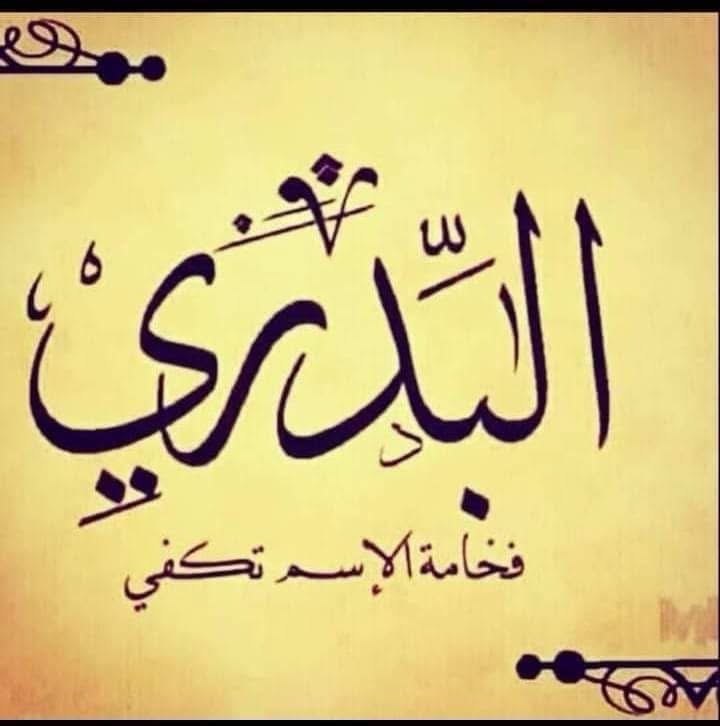 البدري
فخامة الإسم تكفي